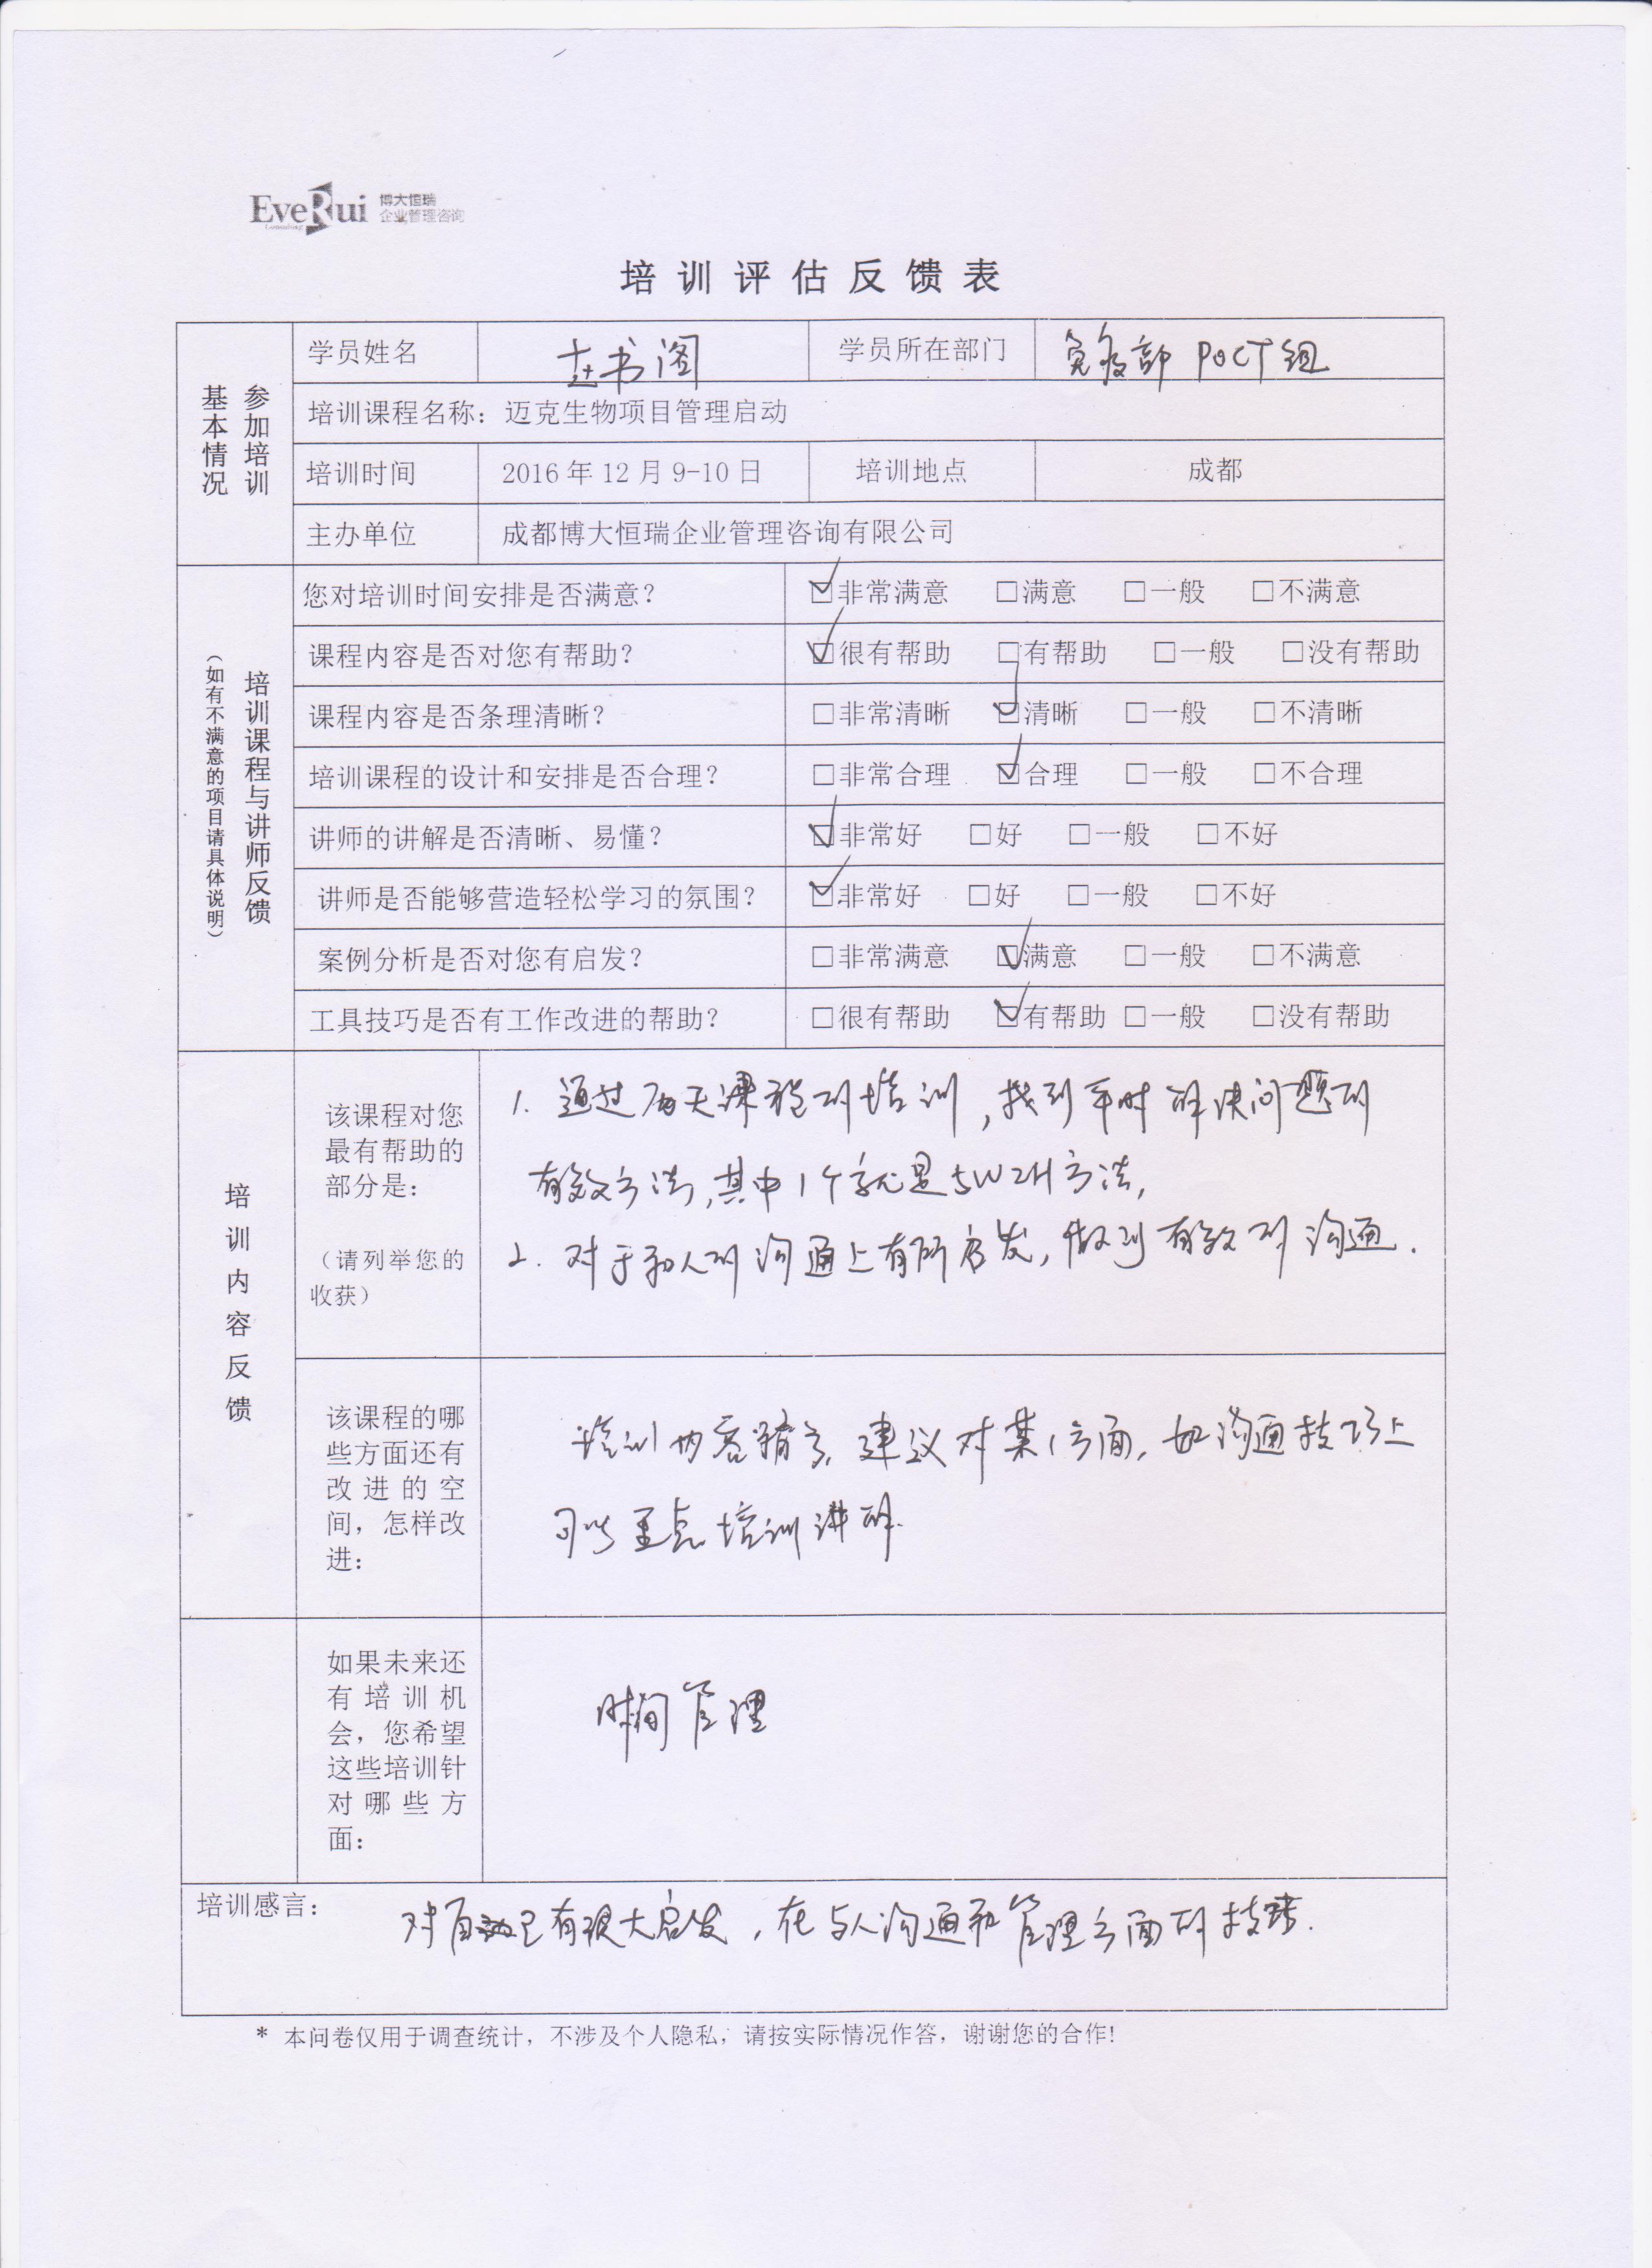 EveRui 博大恒瑞
Consulting 企业管理咨询
培训评估反馈表
参加培训基本情况
学员姓名 书阁 学员所在部门 免疫部 POCT组
培训课程名称：迈克生物项目管理启动
培训时间 2016年12月9-10日 培训地点 成都
主办单位 成都博大恒瑞企业管理咨询有限公司
培训课程与讲师反馈
（如有不满意的项目请具体说明）
您对培训时间安排是否满意？ ☑非常满意 □满意 □一般 □不满意
课程内容是否对您有帮助？ ☑很有帮助 □有帮助 □一般 □没有帮助
课程内容是否条理清晰？ □非常清晰 ☑清晰 □一般 □不清晰
培训课程的设计和安排是否合理？ □非常合理 ☑合理 □一般 □不合理
讲师的讲解是否清晰、易懂？ ☑非常好 □好 □一般 □不好
讲师是否能够营造轻松学习的氛围？ ☑非常好 □好 □一般 □不好
案例分析是否对您有启发？ □非常满意 ☑满意 □一般 □不满意
工具技巧是否有工作改进的帮助？ □很有帮助 ☑有帮助 □一般 □没有帮助
培训内容反馈
该课程对您
最有帮助的
部分是：
（请列举您的
收获）
1. 通过两天课程的培训，找到平时解决问题的
有效方法，其中1个就是5W2H方法，
2. 对于和人的沟通上有所启发，做到有效的沟通．
该课程的哪
些方面还有
改进的空
间，怎样改
进：
培训内容稍多，建议对某1方面，如沟通技巧上
可以重点培训讲解．
如果未来还
有培训机
会，您希望
这些培训针
对哪些方
面：
时间管理
培训感言： 对自己有很大启发，在与人沟通和管理方面的技．
* 本问卷仅用于调查统计，不涉及个人隐私，请按实际情况作答，谢谢您的合作！